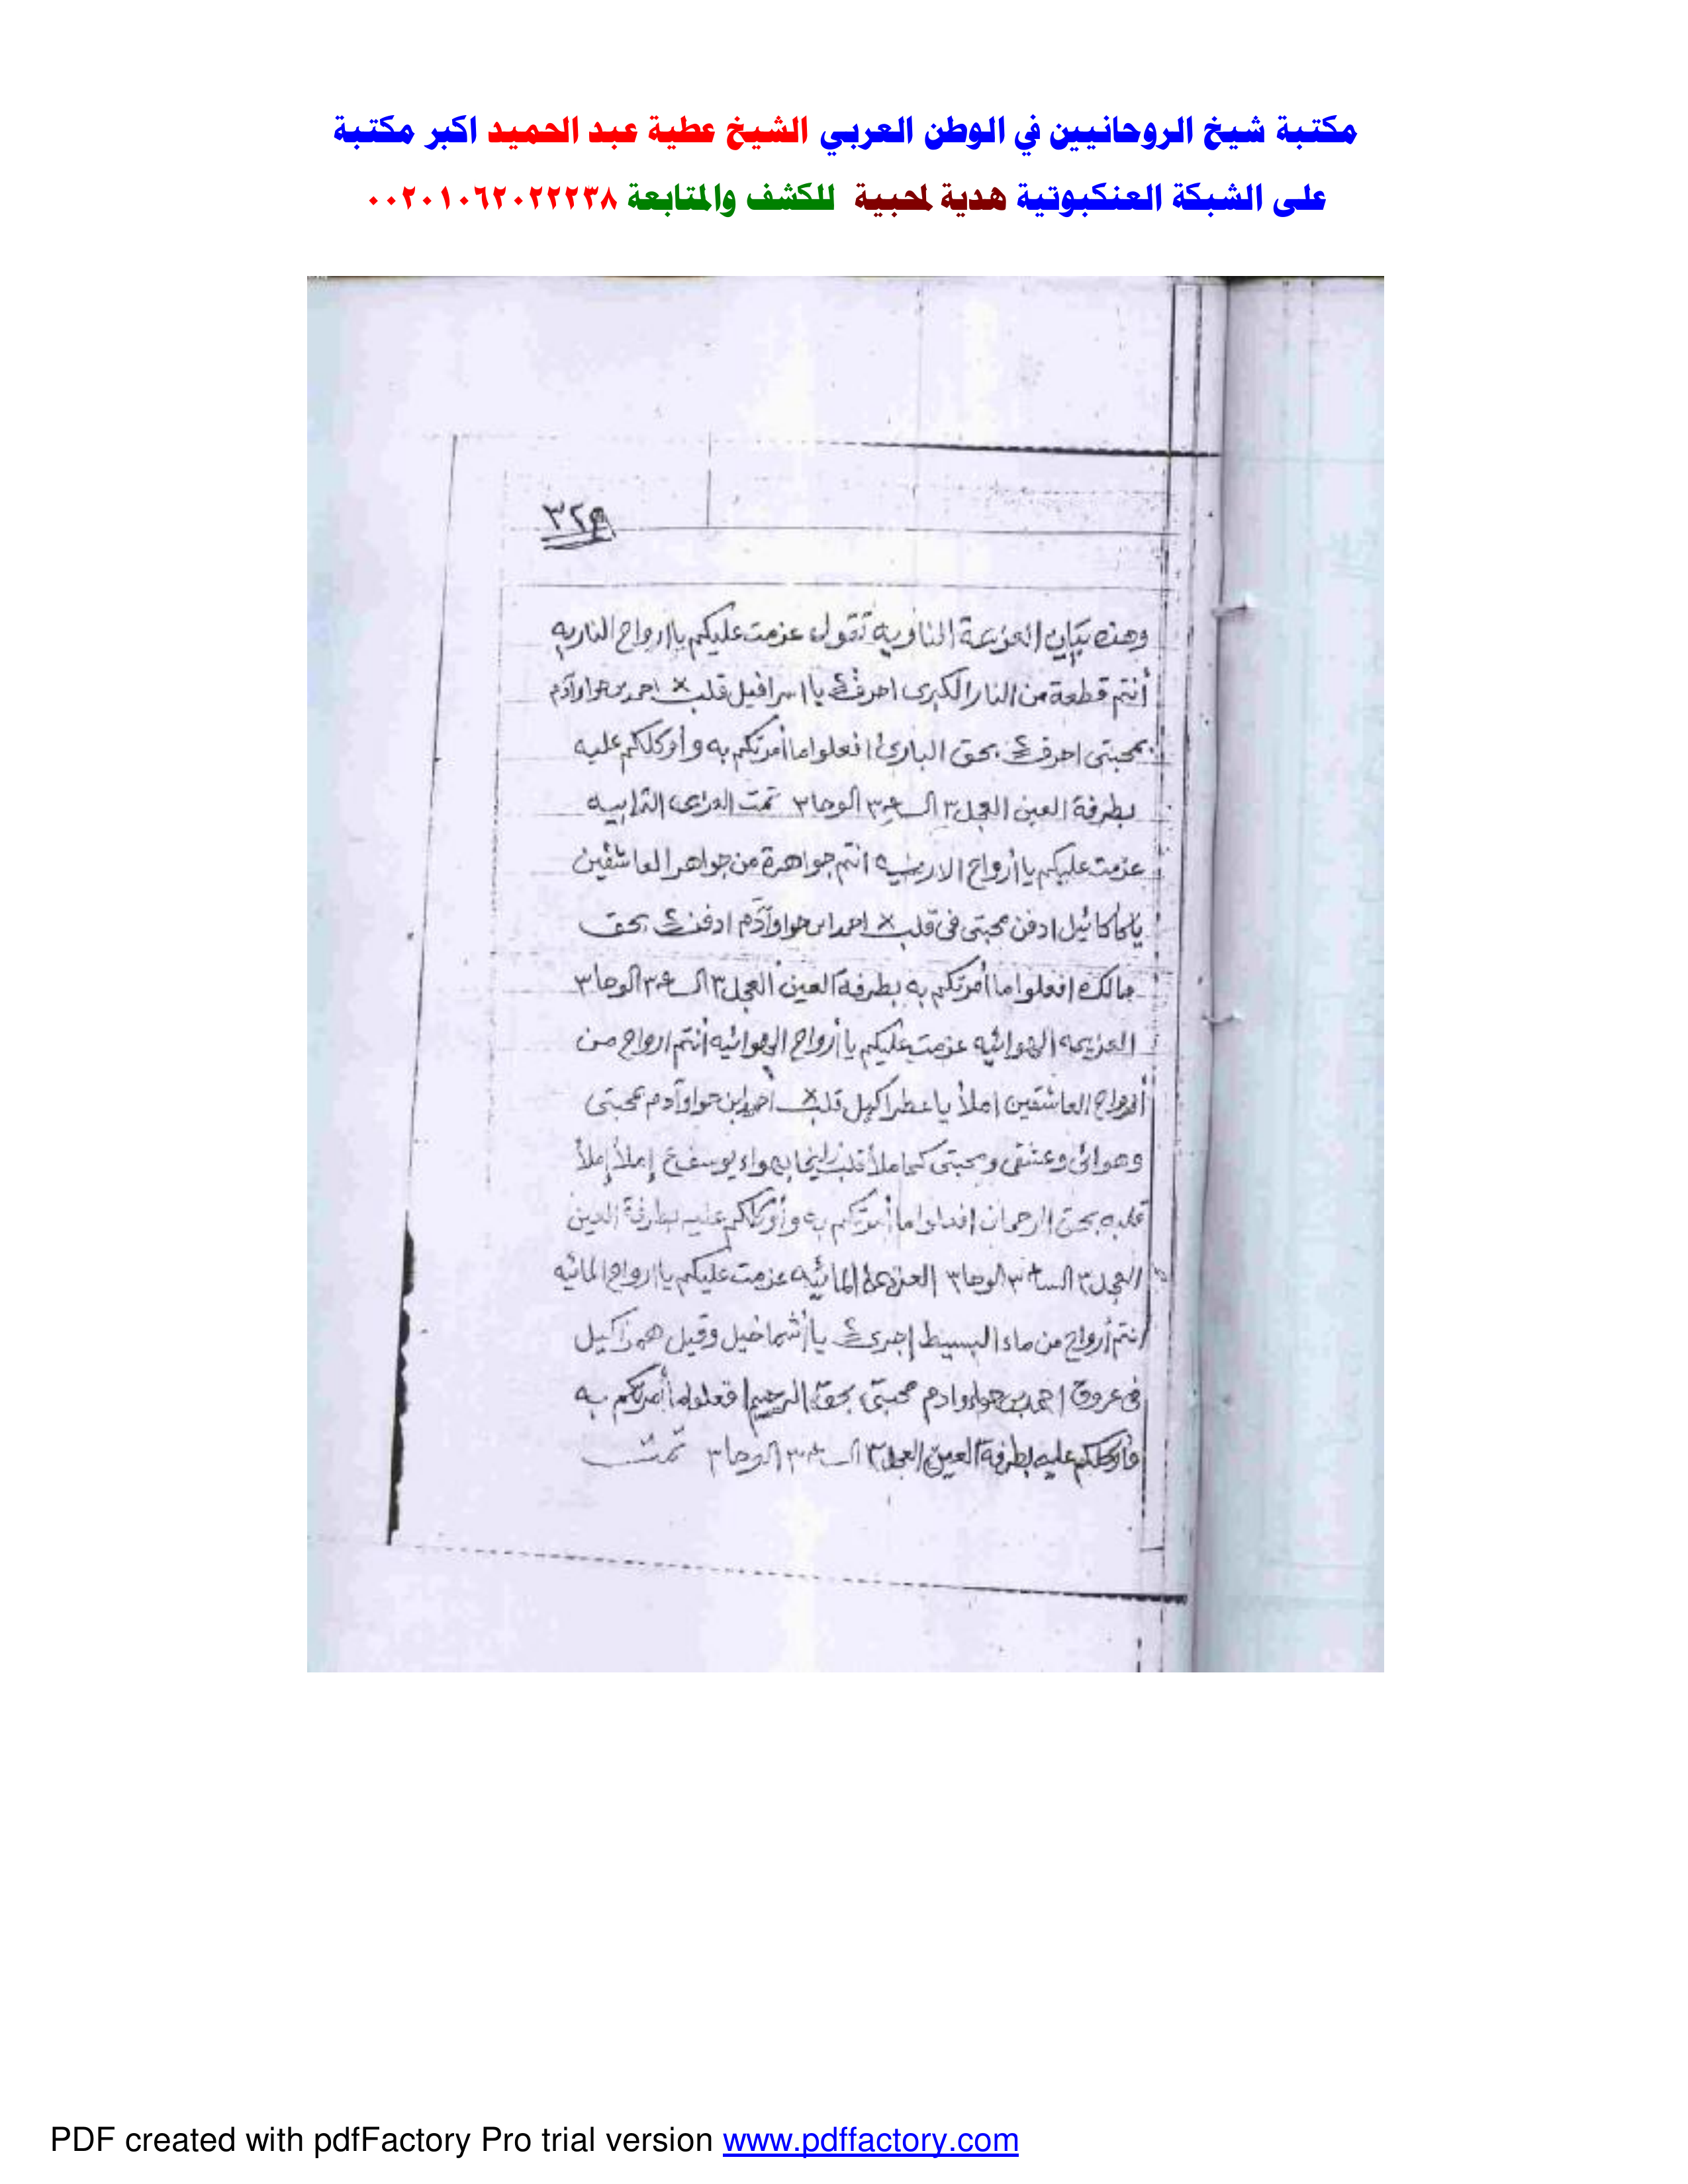 مكتبة شيخ الروحانيين في الوطن العربي الشيخ عطية عبد الحميد اكبر مكتبة
على الشبكة العنكبوتية هدية لمحبيه للكشف والمتابعة ٠٠٢٠١٠٦٢٠٢٢٢٣٨
وهذه بيان العزيمة الناريه تقول عزمت عليكم يا ارواح الناريه
أنتم قطعة من النار الكبرى احرق يا اسرافيل قلب × احمد بن حوا وآدم
بمحبتى احرق بحق البارئ افعلوا ما أمرتكم به وأوكلكم عليه
بطرفة العين العجل٣ الوحا٣ تمت الترابيه
عزمت عليكم يا أرواح الارضيه انتم جواهرة من جواهر العاشقين
ادفن محبتى فى قلب × احمد ابن حوا وآدم ادفن بحق
مالك افعلوا ما أمرتكم به بطرفة العين العجل٣ الوحا٣
العزيمه الهوائيه عزمت عليكم يا أرواح الهوائيه أنتم ارواح من
أرواح العاشقين املأ يا قلب × احمد ابن حوا وآدم بمحبتى
وهوائى وعشقى ومحبتى كما ملأ قلب زليخا بهواء يوسف ع إملأ إملأ
قلبه بحق الرحمان افعلوا ما أمرتكم به وأوكلكم عليه بطرفة العين
العجل٣ الوحا٣ العزيمة المائيه عزمت عليكم يا ارواح المائيه
انتم أرواح من ماء البسيط إجرى يا وقيل
فى عروق احمد بن حواء وادم محبتى بحق الرحيم افعلوا ما أمرتكم به
وأوكلكم عليه بطرفة العين العجل٣ الوحا٣ تمت
PDF created with pdfFactory Pro trial version www.pdffactory.com